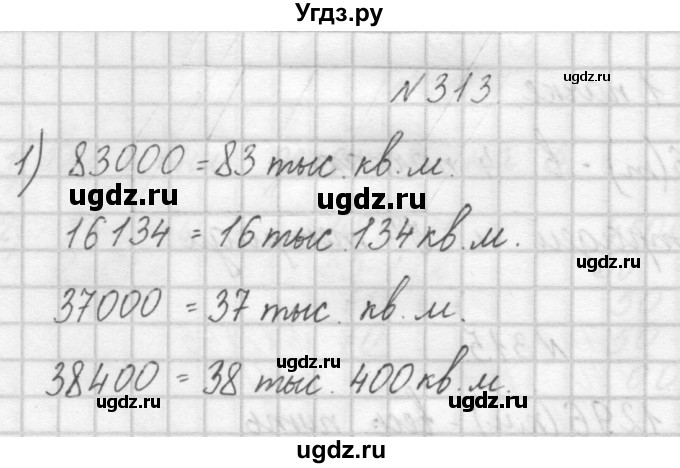 Угдз.ру
ugdz.ru
№313
1) 83000 = 83 тыс. кв. м.
ugdz.ru ugdz.ru
16134 = 16 тыс. 134 кв. м.
ugdz.ru
37000 = 37 тыс. кв. м.
№315
ugdz.ru
38400 = 38 тыс. 400 кв. м.
ugdz.ru ugdz.ru
ugdz.ru